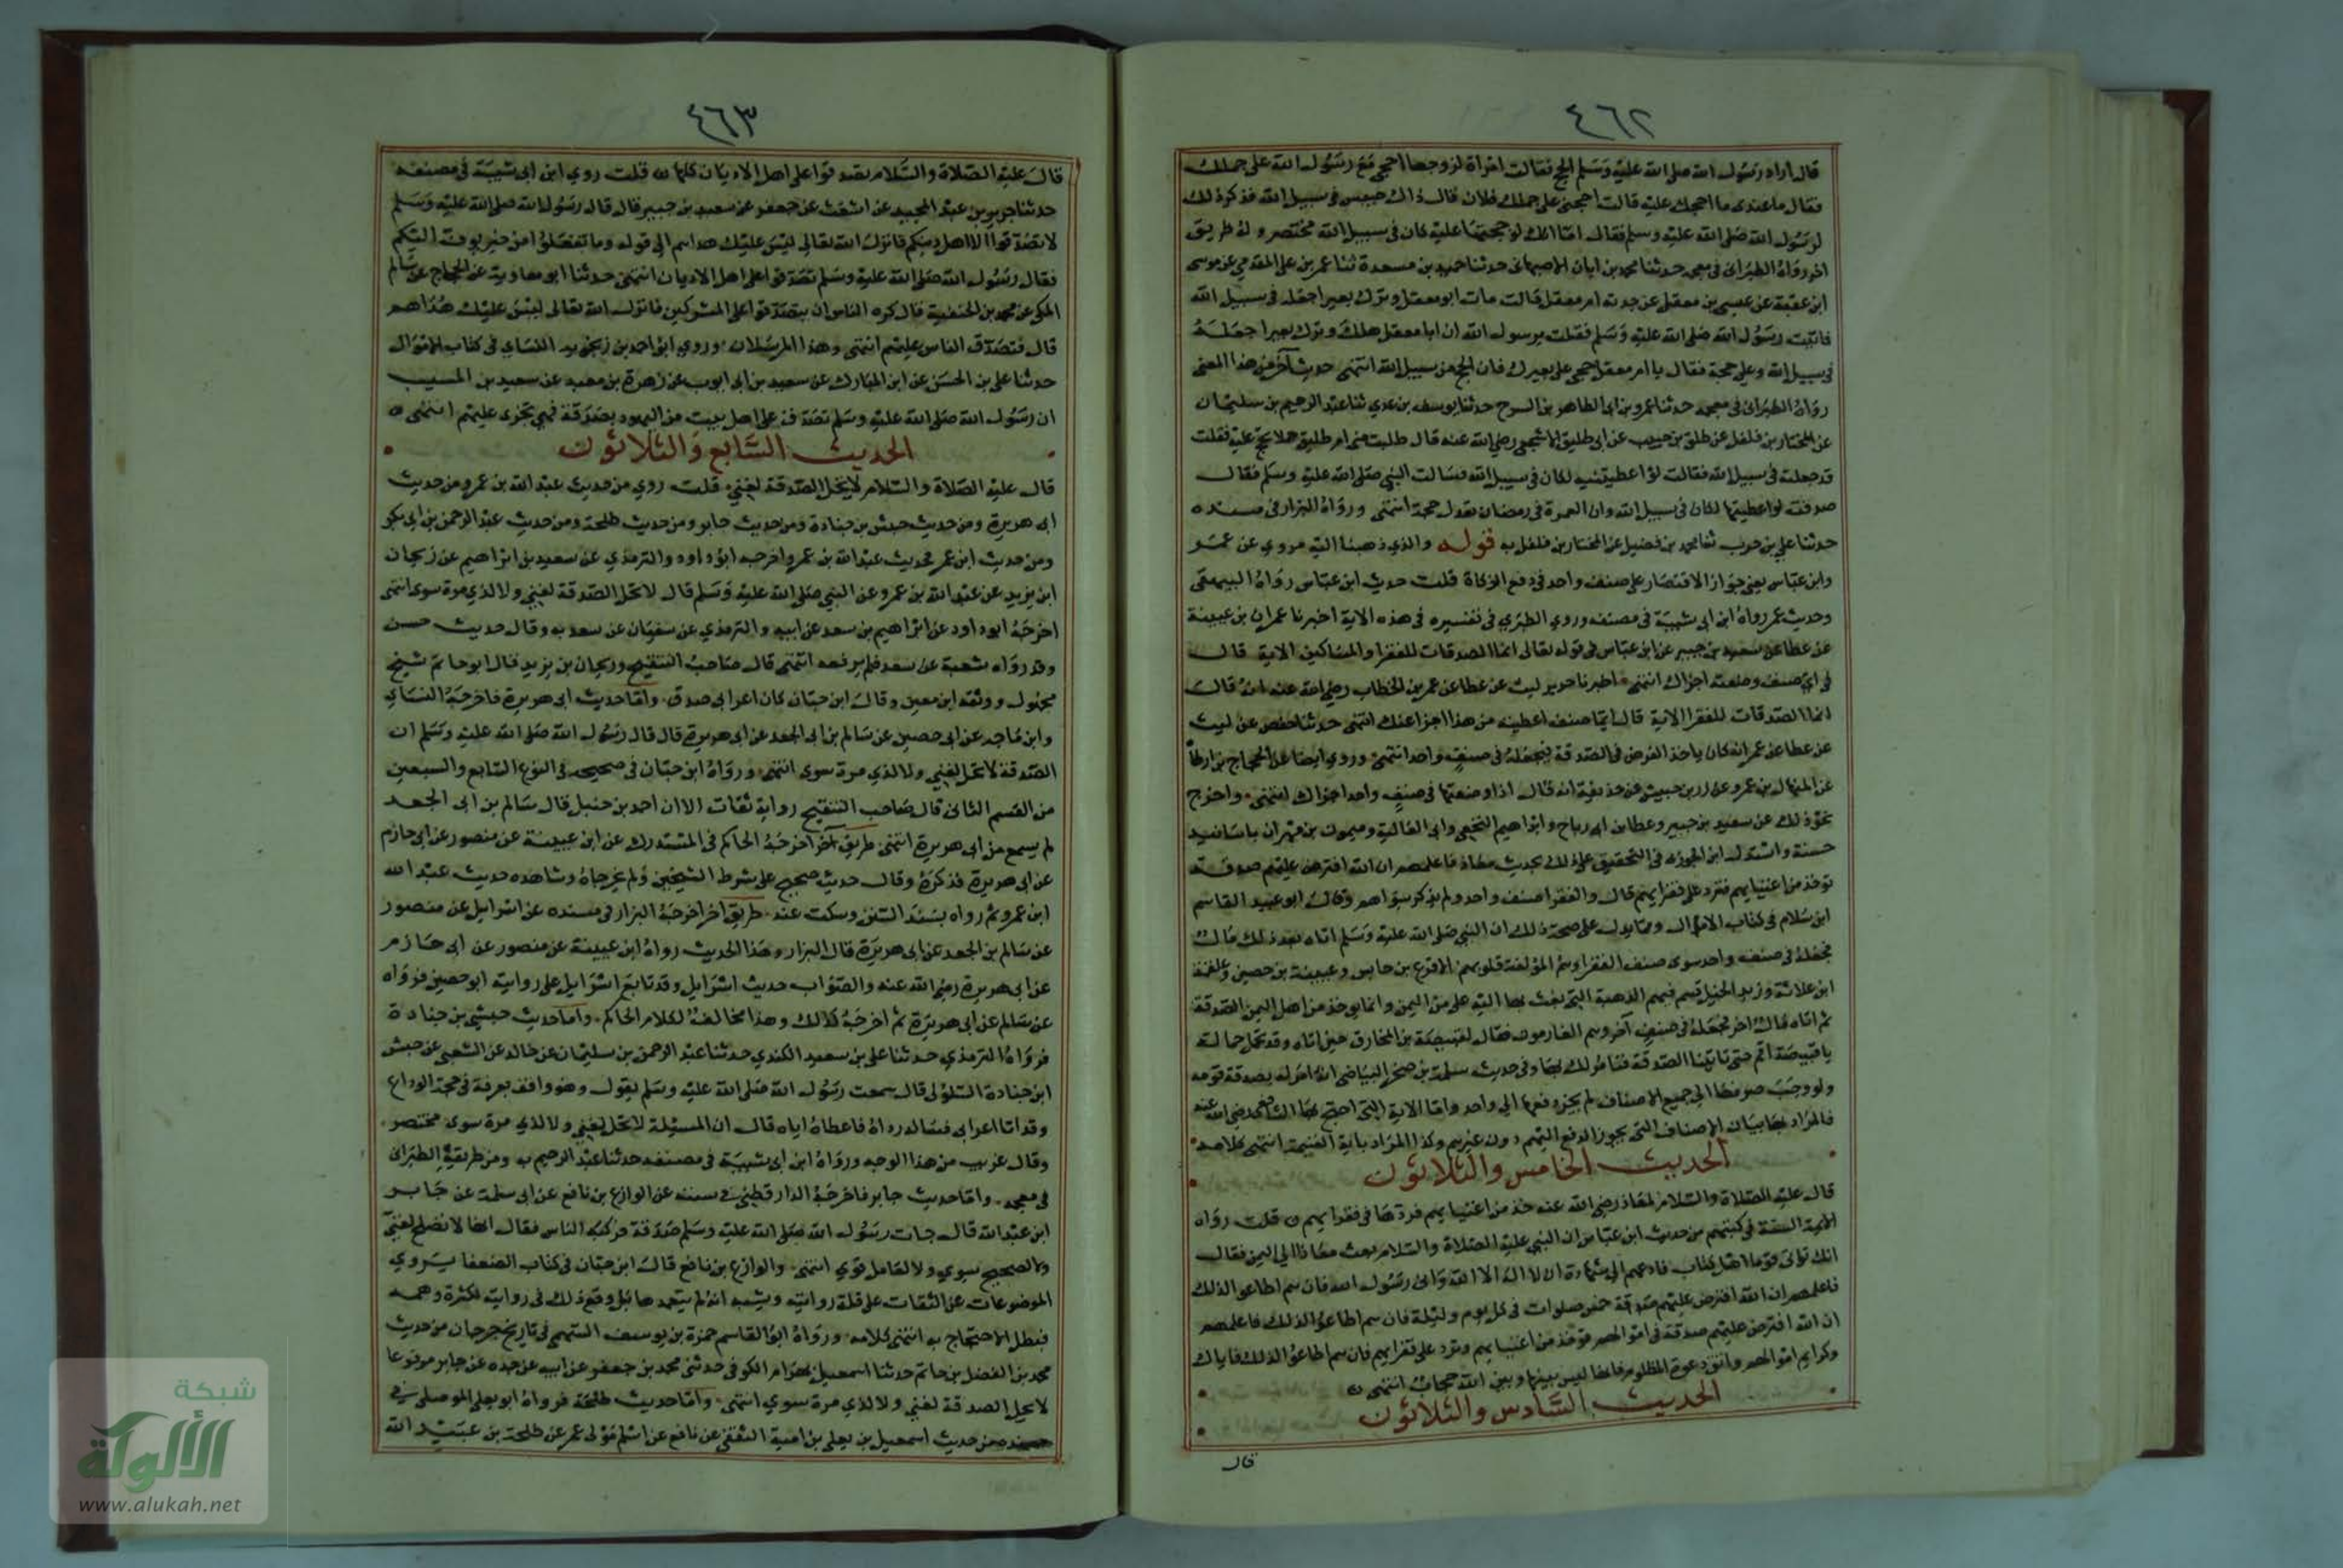 ٤٦٢
قال اراد رسول الله صلى الله عليه وسلم الحج فقالت امراة لزوجها احجى مع رسول الله على جملك
فقال ما عندى ما احجك عليه قالت احجنى على جملك فلان قال ذاك حبيس في سبيل الله فذكر ذلك
لرسول الله صلى الله عليه وسلم فقال اما انك لو حججتها عليه كان فى سبيل الله مختصر وله طريق
اخر رواه الطبرانى فى معجمه حدثنا محمد بن ابان الاصبهانى حدثنا حميد بن مسعدة ثنا عمر بن على المقدمي عن موسى
ابن عقبة عن عيسى بن معقل عن جدته ام معقل قالت مات ابو معقل وترك بعيرا جعله فى سبيل الله
فاتيت رسول الله صلى الله عليه وسلم فقلت يرسول الله ان ابا معقل هلك وترك بعيرا جعله
فى سبيل الله وعلى حجة فقال يا ام معقل حجى على بعيرك فان الحج من سبيل الله انتهى حديث آخر من هذا المعنى
رواه الطبرانى فى معجمه حدثنا عمرو بن ابى الطاهر بن السرح حدثنا يوسف بن عدي ثنا عبد الرحيم بن سليمان
عن المختار بن فلفل عن طلق بن حبيب عن ابى طليق الاشجعى رضي الله عنه قال طلبت منى ام طليق جملا يحج عليه فقلت
قد جعلته فى سبيل الله فقالت لو اعطيتنيه لكان فى سبيل الله فسالت النبي صلى الله عليه وسلم فقال
صدقت لو اعطيتها لكان فى سبيل الله وان العمرة فى رمضان تعدل حجة انتهى ورواه البزار فى مسنده
حدثنا علي بن حرب ثنا محمد بن فضيل عن المختار بن فلفل به قوله والذي ذهبنا اليه مروي عن عمر
وابن عباس يعنى جواز الاقتصار على صنف واحد فى دفع الزكاة قلت حديث ابن عباس رواه البيهقى
وحديث عمر رواه ابن ابى شيبة فى مصنفه وروي الطبري فى تفسيره فى هذه الاية اخبرنا عمران بن عيينة
عن عطا عن سعيد بن جبير عن ابن عباس فى قوله تعالى انما الصدقات للفقرا والمساكين الاية قال
فى اي صنف وضعته اجزاك انتهى اخبرنا جرير ليث عن عطا عن عمر بن الخطاب رضي الله عنه انه قال
انما الصدقات للفقرا الاية قال ايما صنف اعطيته من هذا اجزا عنك انتهى حدثنا حفص عن ليث
عن عطا عن عمر انه كان ياخذ الفرض فى الصدقة فيجعله فى صنف واحد انتهى وروي ايضا عن الحجاج بن ارطاة
عن المنهال بن عمرو عن زر بن حبيش عن حذيفة انه قال اذا وضعتها فى صنف واحد اجزاك انتهى واخرج
نحو ذلك عن سعيد بن جبير وعطا بن ابى رباح وابراهيم النخعي وابى العالية وميمون بن مهران باسانيد
حسنة واستدل ابن الجوزي فى التحقيق على ذلك بحديث معاذ فاعلمهم ان الله افترض عليهم صدقة
توخذ من اغنيايهم فترد على فقرايهم قال والفقرا صنف واحد ولم يذكر سواهم وقال ابو عبيد القاسم
ابن سلام فى كتاب الاموال ومما يدل على صحة ذلك ان النبي صلى الله عليه وسلم اتاه بعد ذلك مال
فجعله فى صنف واحد سوى صنف الفقرا وهم المولفة قلوبهم الاقرع بن حابس وعيينة بن حصين وعلقمة
ابن علاثة وزيد الخيل قسم فيهم الذهبة التى بعث بها اليه على من اليمن وانما يوخذ من اهل اليمن الصدقة
ثم اتاه مال اخر فجعله فى صنف آخر وهم الغارمون فقال لقبيصة بن المخارق حين اتاه وقد تحمل حمالة
يا قبيصة اقم حتى تاتينا الصدقة فنامر لك بها وفى حديث سلمة بن صخر البياضى انه امر له بصدقة قومه
ولو وجب صرفها الى جميع الاصناف لم يجز دفعها الى واحد واما الاية التى احتج بها الشافعي رضي الله عنه
فالمراد بها بيان الاصناف التى يجوز الدفع اليهم دون غيرهم وكذا المراد باية الغنيمة انتهى كلامه
الحديث الخامس والثلاثون
قال عليه الصلاة والسلام لمعاذ رضي الله عنه خذ من اغنيايهم فردها فى فقرايهم قلت رواه
الايمة الستة فى كتبهم من حديث ابن عباس ان النبي عليه الصلاة والسلام بعث معاذا الى اليمن فقال
انك تاتى قوما اهل كتاب فادعهم الى شهادة ان لا اله الا الله وانى رسول الله فان هم اطاعوا لذلك
فاعلمهم ان الله افترض عليهم خمس صلوات فى كل يوم وليلة فان هم اطاعوا لذلك فاعلمهم
ان الله افترض عليهم صدقة فى اموالهم توخذ من اغنيايهم وترد على فقرايهم فان هم اطاعوا لذلك فاياك
وكرايم اموالهم واتق دعوة المظلوم فانها ليس بينها وبين الله حجاب انتهى
الحديث السادس والثلاثون
قال
٤٦٣
قال عليه الصلاة والسلام تصدقوا على اهل الاديان كلها قلت روي ابن ابى شيبة فى مصنفه
حدثنا جرير بن عبد الحميد عن اشعث عن جعفر عن سعيد بن جبير قال قال رسول الله صلى الله عليه وسلم
لا تصدقوا الا اهل دينكم فانزل الله تعالى ليس عليك هداهم الى قوله وما تفعلوا من خير يوف اليكم
فقال رسول الله صلى الله عليه وسلم تصدقوا على اهل الاديان انتهى حدثنا ابو معاوية عن الحجاج عن سالم
المكى عن محمد بن الحنفية قال كره الناس ان يتصدقوا على المشركين فانزل الله تعالى ليس عليك هداهم
قال فتصدق الناس عليهم انتهى وهذا المرسلان وروي ابو احمد بن زنجويه النساي فى كتاب الاموال
حدثنا على بن الحسن عن ابن المبارك عن سعيد بن ابى ايوب عن زهرة بن معبد عن سعيد بن المسيب
ان رسول الله صلى الله عليه وسلم تصدق على اهل بيت من اليهود بصدقة فهي تجزى عليهم انتهى
الحديث السابع والثلاثون
قال عليه الصلاة والسلام لا تحل الصدقة لغني قلت روي من حديث عبد الله بن عمرو ومن حديث
ابى هريرة ومن حديث حبشي بن جنادة ومن حديث جابر ومن حديث طلحة ومن حديث عبد الرحمن بن ابى بكر
ومن حديث ابن عمر فحديث عبد الله بن عمرو اخرجه ابو داود والترمذي عن سعيد بن ابراهيم عن ريحان
ابن يزيد عن عبد الله بن عمرو عن النبي صلى الله عليه وسلم قال لا تحل الصدقة لغني ولا لذي مرة سوي انتهى
اخرجه ابو داود عن ابراهيم بن سعد عن ابيه والترمذي عن سفيان عن سعد به وقال حديث حسن
وقد رواه شعبة عن سعد فلم يرفعه انتهى قال صاحب التنقيح وريحان بن يزيد قال ابو حاتم شيخ
مجهول ووثقه ابن معين وقال ابن حبان كان اعرابى صدق واما حديث ابى هريرة فاخرجه النساي
وابن ماجه عن ابى حصين عن سالم بن ابى الجعد عن ابى هريرة قال قال رسول الله صلى الله عليه وسلم ان
الصدقة لا تحل لغني ولا لذي مرة سوي انتهى ورواه ابن حبان فى صحيحه فى النوع التاسع والسبعين
من القسم الثانى قال صاحب التنقيح رواته ثقات الا ان احمد بن حنبل قال سالم بن ابى الجعد
لم يسمع من ابى هريرة انتهى طريق آخر اخرجه الحاكم فى المستدرك عن ابن عيينة عن منصور عن ابى حازم
عن ابى هريرة فذكره وقال حديث صحيح على شرط الشيخين ولم يخرجاه وشاهده حديث عبد الله
ابن عمرو ثم رواه بسند السنن وسكت عنه طريق اخر اخرجه البزار فى مسنده عن اسرايل عن منصور
عن سالم بن الجعد عن ابى هريرة قال البزار وهذا الحديث رواه ابن عيينة عن منصور عن ابى حازم
عن ابى هريرة رضي الله عنه والصواب حديث اسرايل وقد تابع اسرايل على روايته ابو حصين فرواه
عن سالم عن ابى هريرة ثم اخرجه كذلك وهذا مخالف لكلام الحاكم واما حديث حبشي بن جنادة
فرواه الترمذي حدثنا على بن سعيد الكندي حدثنا عبد الرحمن بن سليمان عن خالد عن الشعبى عن حبش
ابن جنادة السلولى قال سمعت رسول الله صلى الله عليه وسلم يقول وهو واقف بعرفة فى حجة الوداع
وقد اتا اعرابى فساله رداه فاعطاه اياه قال ان المسيلة لا تحل لغني ولا لذي مرة سوي مختصر
وقال غريب من هذا الوجه ورواه ابن ابى شيبة فى مصنفه حدثنا عبد الرحيم به ومن طريقه الطبرانى
فى معجمه واما حديث جابر فاخرجه الدارقطني فى سننه عن الوازع بن نافع عن ابى سلمة عن جابر
ابن عبد الله قال جات رسول الله صلى الله عليه وسلم صدقة فركبه الناس فقال انها لا تصلح لغني
ولا لصحيح سوي ولا لعامل قوي انتهى والوازع بن نافع قال ابن حبان فى كتاب الضعفا يروي
الموضوعات عن الثقات على قلة روايته ويشبه انه لم يتعمدها بل وقع ذلك فى روايته لكثرة وهمه
فبطل الاحتجاج به انتهى كلامه ورواه ابو القاسم حمزة بن يوسف السهمى فى تاريخ جرجان من حديث
محمد بن الفضل بن حاتم حدثنا اسمعيل بهرام الكوفى حدثنى محمد بن جعفر عن ابيه عن جده عن جابر مرفوعا
لا تحل الصدقة لغني ولا لذي مرة سوي انتهى واما حديث طلحة فرواه ابو يعلى الموصلى فى
مسنده من حديث اسمعيل بن يعلى بن امية الثقفى عن نافع عن اسلم مولى عمر عن طلحة بن عبيد الله
شبكة
الألوكة
www.alukah.net